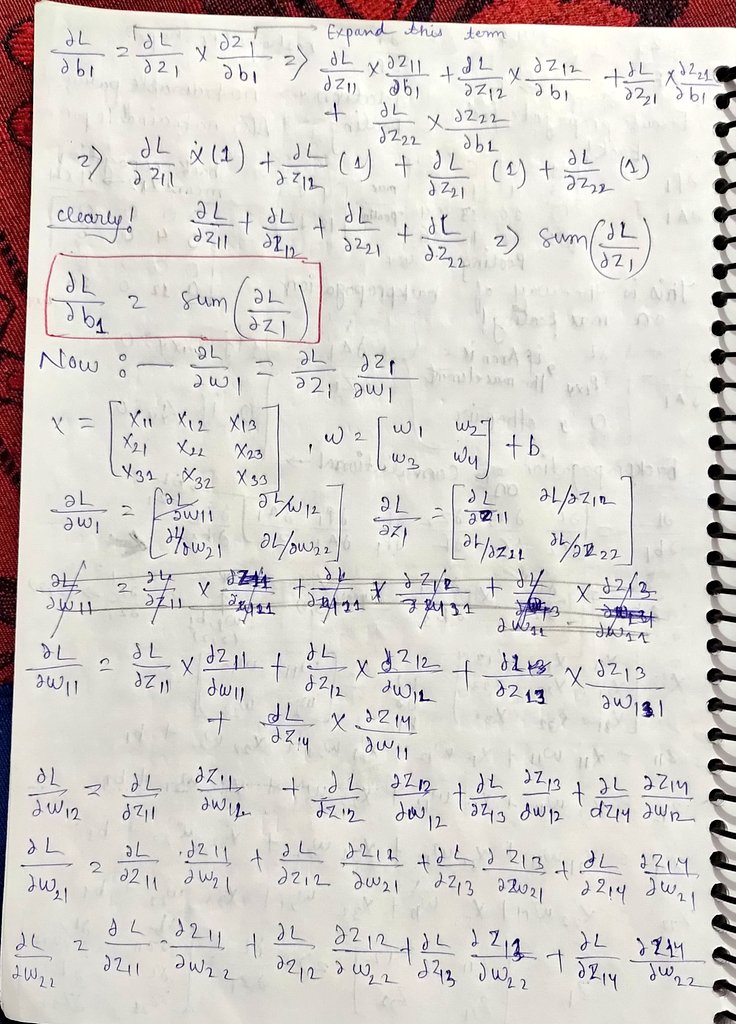 Expand this term
∂L/∂b1 = ∂L/∂Z1 × ∂Z1/∂b1 => ∂L/∂Z11 × ∂Z11/∂b1 + ∂L/∂Z12 × ∂Z12/∂b1 + ∂L/∂Z21 × ∂Z21/∂b1
+ ∂L/∂Z22 × ∂Z22/∂b1
=> ∂L/∂Z11 × (1) + ∂L/∂Z12 (1) + ∂L/∂Z21 (1) + ∂L/∂Z22 (1)
clearly! ∂L/∂Z11 + ∂L/∂Z12 + ∂L/∂Z21 + ∂L/∂Z22 => Sum(∂L/∂Z1)
∂L/∂b1 = Sum(∂L/∂Z1)
Now :— ∂L/∂W1 = ∂L/∂Z1 ∂Z1/∂W1
X = [X11 X12 X13
X21 X22 X23
X31 X32 X33] , W = [W1 W2
W3 W4] + b
∂L/∂W1 = [∂L/∂W11 ∂L/W12
∂L/∂W21 ∂L/∂W22] ∂L/∂Z1 = [∂L/∂Z11 ∂L/∂Z12
∂L/∂Z21 ∂L/∂Z22]
∂L/∂W11 = ∂L/∂Z11 × ∂Z11/∂W11 + ∂L/∂Z12 × ∂Z12/∂W12 + ∂L/∂Z13 × ∂Z13/
+ ∂L/∂Z14 × ∂Z14/∂W11
∂L/∂W12 = ∂L/∂Z11 ∂Z11/∂W12 + ∂L/∂Z12 ∂Z12/∂W12 + ∂L/∂Z13 ∂Z13/∂W12 + ∂L/∂Z14 ∂Z14/∂W12
∂L/∂W21 = ∂L/∂Z11 · ∂Z11/∂W21 + ∂L/∂Z12 ∂Z12/∂W21 + ∂L/∂Z13 ∂Z13/∂W21 + ∂L/∂Z14 ∂Z14/∂W21
∂L/∂W22 = ∂L/∂Z11 ∂Z11/∂W22 + ∂L/∂Z12 ∂Z12/∂W22 + ∂L/∂Z13 ∂Z13/∂W22 + ∂L/∂Z14 ∂Z14/∂W22